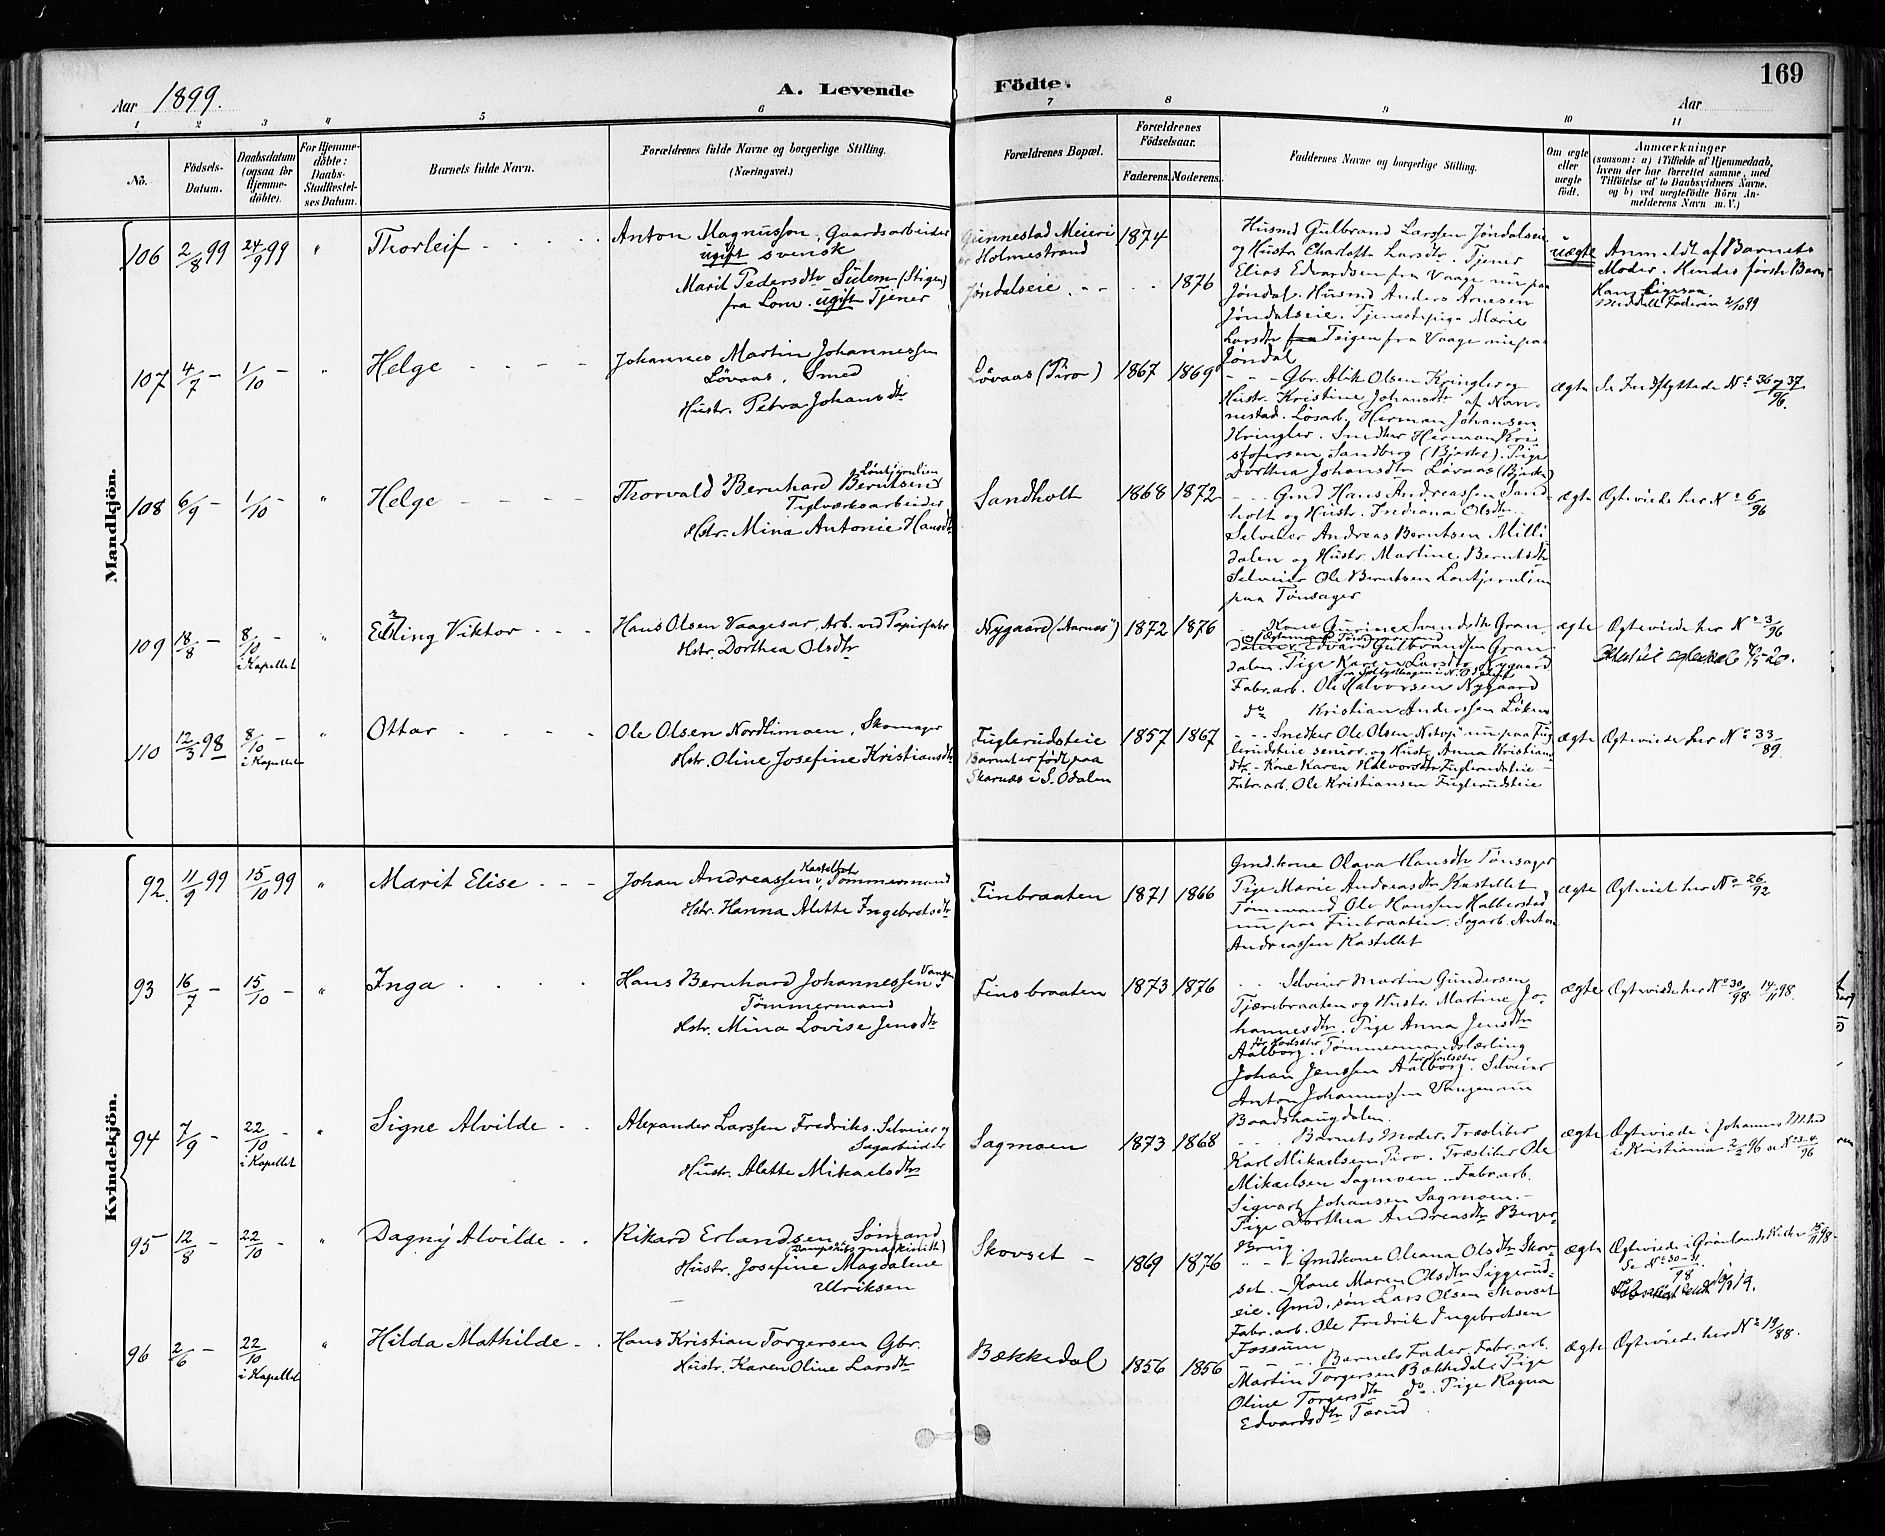 169
Aar 1899.
A. Levende Födte.
Aar
1 2 3 4 5 6 7 8 9 10 11
No.
Födsels-
Datum.
Daabsdatum
(ogsaa for
Hjemme-
döbte).
For Hjemme-
döbte:
Daabs-
Stadfæstel-
ses Datum.
Barnets fulde Navn.
Forældrenes fulde Navne og borgerlige Stilling.
(Næringsvei.)
Forældrenes Bopæl.
Forældrenes
Födselsaar.
Faderens. Moderens.
Faddernes Navne og borgerlige Stilling.
Om ægte
eller
uægte
födt.
Anmærkninger
(saasom: a) i Tilfælde af Hjemmedaab,
hvem der har forrettet samme, med
Tilföielse af to Daabsvidners Navne,
og b) ved uægtefödte Börn An-
melderens Navn m. V.)
Mandkjön.
106 2/8 99 24/9 99 " Thorleif
Anton Magnusson, Gaardsarbeider
ugift svensk
Marit Pedersdtr Sulem (Stigen)
fra Lom. ugift Tjener
Gunnestad Meieri
Holmestrand
Jøndalseie
1874
1876
Husmd Gulbrand Larssen Jøndalseie
og Hustr Charlotte Larsdtr. Tjener
Elias Edvardsen fra Vaage nu paa
Jøndal. Husmd Anders Arnesen
Jøndalseie. Tjenestepige Marie
Larsdtr Teigen fra Vaage nu paa
Jøndal
uægte
Anmeldt af Barnets
Moder. Hendes første Barn
Hans Ligesaa
Meddelt Faderen 2/10 99
107 4/7 – 1/10 – " Helge
Johannes Martin Johannessen
Løvaas, Smed
Hustr. Petra Johansdtr
Løvaas (Piro) 1867 1869
Gbr. Alik Olsen Kringler og
Hustr. Kristine Johansdtr af Nan-
nestad. Løsarb. Herman Johansen
Kringler. Smeder Herman Kri
stofersen Sandberg (Bjerke). Pige
Dorthea Johansdtr Løvaas (Bjerke)
ægte
Se Indflyttede No 36 og 37/96.
108 6/9 – 1/10 – " Helge
Thorvald Bernhard Berntsen
Teglværksarbeider
Hstr. Mina Antonie Hansdtr
Sandholt 1868 1872
Gmd Hans Andreassen Sand
holt og Hustr. Indiana Olsdtr
Selveier Andreas Berntsen Milli
dalen og Hustr Martine Berntsdtr
Selveier Ole Berntsen Løntjernlien
paa Tønsager
ægte
Ægteviede her No 6/96
109 18/8 – 8/10 – i Kapellet " Erling Viktor
Hans Olsen Vaagesar, Arb. ved Papirfabr
Hstr. Dorthea Olsdtr
Nygaard (Aarnæs) 1872 1876
Kone Gurine Svendsdtr Gran
Edvard Gulbrandsen Gran
dalen. Pige Karen Larsdtr Nygaard
Fabr.arb. Ole Halvorsen Nygaard
do Kristian Anderssen Liknes
ægte
Ægteviede her No 3/96
110 12/3 98 8/10 – i Kapellet " Ottar
Ole Olsen Nordlimoen, Skomager
Hstr. Oline Josefine Kristiansdtr
Fuglerudseie
Barnet er født paa
Skarnæs i S. Odalen
1857 1867
Snedker Ole Olsen Netop nu paa Fug
lerudseie senior og Hustr. Anna Kristians
dtr – Kone Karen Halvorsdtr Fuglerudseie –
Fabr.arb. Ole Kristiansen Fuglerudseie
ægte
Ægteviede her No 33/89.
Kvindekjön.
92 11/9 99 15/10 99 " Marit Elise
Johan Andreassen Kastellet, Tømmermand
Hstr. Hanna Alette Ingebretsdtr
Finbraaten 1871 1866
Gmd.kone Olava Hansdtr Tønsager
Pige Marie Andreasdtr Kastellet
Tømmermand Ole Hanssen Halberstad
nu paa Finbraaten. Sagarb. Anton
Andreassen Kastellet
ægte
Ægteviet her No 26/92
93 16/7 – 15/10 – " Inga
Hans Bernhard Johannessen Vangen
Tømmermand
Hstr. Mina Lovise Jensdtr
Finsbraaten 1873 1876
Selveier Martin Gundersen
Tjernbraaten og Hustr. Martine Jo-
hannesdtr. Pige Anna Jensdtr
Aalborg. Tømmermandslærling
Johan Jenssen Aalborg. Selveier
Anton Johannessen Vangen nu
Baadshaugdalen.
ægte
Ægteviede her No 30/98. 14/11 98.
94 7/9 – 22/10 – i Kapellet " Signe Alvilde
Alexander Larssen Fredriks. Selveier og
Sagarbeider
Hustr. Alette Mikaelsdtr
Sagmoen 1873 1868
Barnets Moder. Træsliber
Karl Mikaelsen Piro. Træsliber Ole
Mikaelsen Sagmoen. Fabr.arb.
Sigvart Johansen Sagmoen. –
Pige Dorthea Andreasdtr Berger-
Brug
ægte
Ægteviede i Johannes Mhed
i Kristiania 2/2 96 se No 3-4/96
95 12/8 – 22/10 – " Dagny Alvilde
Rikard Erlandsen, Sömand
(Dampskibsmaskinist)
Hustr. Josefine Magdalene
Ulriksen
Skovset – 1869 1876
Gmdkone Oleana Olsdtr Skov-
set – Kone Maren Olsdtr Siggerud-
eie. Gmd.søn Lars Olsen Skovset
Fabr.arb. Ole Fredrik Ingebretsen
Fossum
ægte
Ægteviede i Grønlands Kirke 15/11 98.
Se No 30-31/98
96 2/6 – 22/10 i Kapellet " Hilda Mathilde
Hans Kristian Torgersen Gbr.
Hustr. Karen Oline Larsdtr
Bækkedal 1856 1856
Barnets Fader. Fabr.arb.
Martin Torgersen Bækkedal. Pige
Oline Torgersdtr do. Pige Ragna
Edvardsdtr Tærud
ægte
Ægteviede her No 19/88.